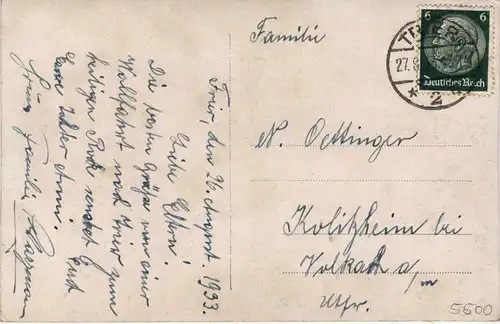 Trier, den 26. August. 1933.
Liebe Eltern!
Die besten Grüße von einer
Wallfahrt nach Trier zum
heiligen Rock sendet Euch
Eure Tochter
Familie
N. Oettinger
Kolitzheim bei
Volkach a/m
Utfr.
6 6
Deutsches Reich
TRIER
27.8
* 2
5600